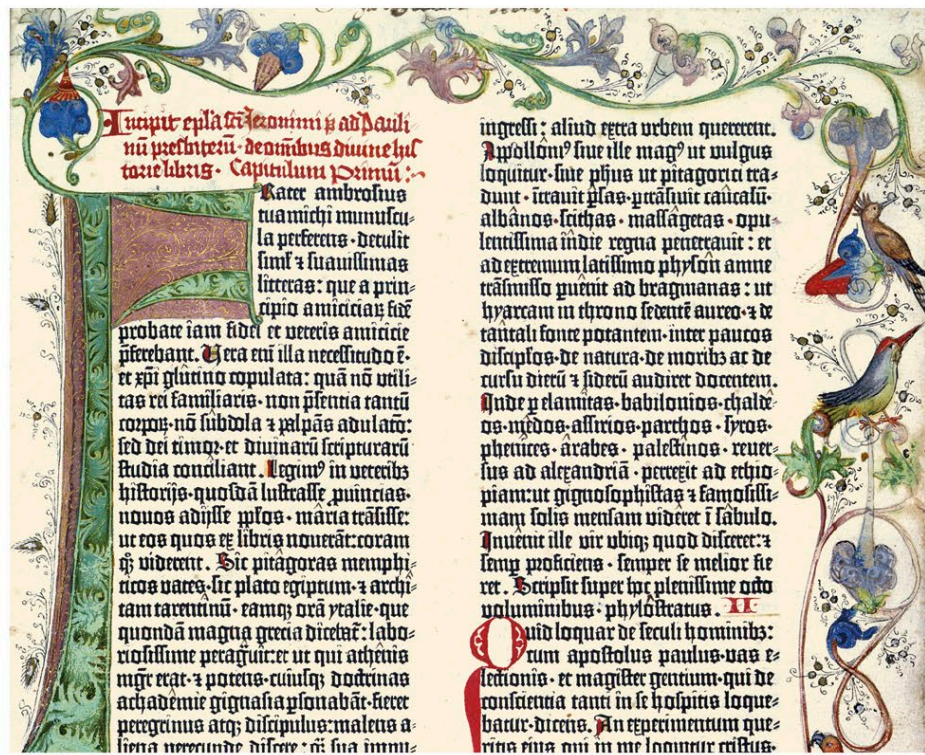 Incipit epl̃a sc̃i Jeronimi p̲ ad Pauli⸗
nũ presbiterũ · de om̃ibus diuine his⸗
torie libris · Capitulum Primũ :·
Frater ambrosius
tua michi munuscu⸗
la perferens · detulit
siml̕ ⁊ suauissimas
litteras : que a prin⸗
cipio amiciciaꝝ fidẽ
probate iam fidei et veteris amicicie
p̃ferebant. Uera eni illa necessitudo ẽ ·
et xp̃i glutino copulata : quã nõ utili⸗
tas rei familiaris · non p̃sentia tantũ
corporꝫ · nõ subdola ⁊ palpãs adulatõ :
sed dei timor · et diuinarũ scripturarũ
studia conciliant. Legimꝰ in veteribꝫ
historijs · quosdã lustrasse ꝓuincias ·
nouos adijsse ppl̃os · maria trãsisse :
ut eos quos ex libris nouerãt : coram
qꝫ viderent. Sic pitagoras memphi⸗
ticos vates · sic plato egiptum · ⁊ archi⸗
tam tarentinũ · eamqꝫ orã ytalie · que
quondã magna grecia dicebat̃ : labo⸗
riosissime peragrauit : et ut qui athenis
mg̃r erat · ⁊ potens · cuiusqꝫ doctrinas
achademie gignasia ꝑsonabãt · fieret
peregrinus atqꝫ discipulus : malens a⸗
liena verecunde discere : q̃ sua impu⸗
ingressi : aliud extra urbem quererent.
Apolloniꝰ siue ille magꝰ ut vulgus
loquitur · siue phus ut pitagorici tra⸗
dunt · ĩtrauit p̃sas · ꝑtrãsiuit caucasũ ·
albanos · scithas · massagetas · opu⸗
lentissima indie regna penetrauit : et
ad extremum latissimo physon amne
trãsmisso puenit ad bragmanas : ut
hyarcam in throno sedentẽ aureo · ⁊ de
tantali fonte potantem · inter paucos
discipl̕os · de natura · de moribꝫ ac de
cursu dierũ ⁊ siderũ audiret docentem.
Inde ꝑ elamitas · babilonios · chalde⸗
os · medos · assirios · parthos · syros
phenices · arabes · palestinos · reuer⸗
sus ad alexandriã · perrexit ad ethio⸗
piam : ut gignosophistas ⁊ famosissi⸗
mam solis mensam videret ĩ sabulo.
Inuenit ille vir ubiqꝫ quod disceret : ⁊
semꝑ proficiens · semper se melior fie
ret. Scripsit super hoc plenissime octo
voluminibus · phylostratus. II
Quid loquar de seculi hominibꝫ :
cum apostolus paulus · vas e⸗
lectionis · et magister gentium · qui de
conscientia tanti in se hospitis loque⸗
batur · dicens. An experimentum que⸗
ritis eius qui in me loquitur cristus·